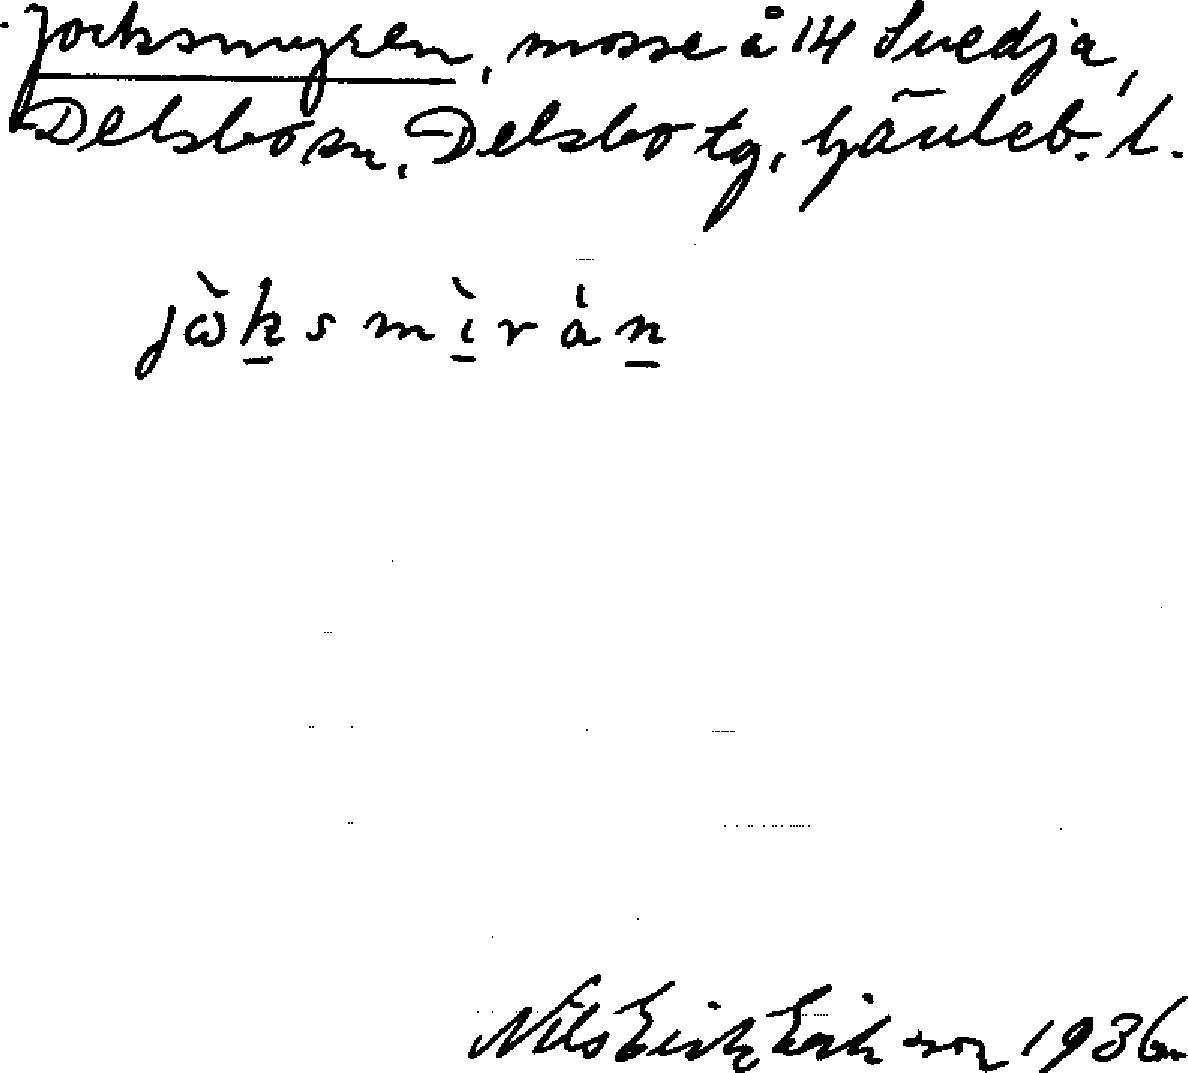 Jocksmyren, mosse å 14 Svedja,
Delsbo sn, Delsbo tg, Gävleb. l.
jὼksmìrán
Nils Erik Erikson 1936